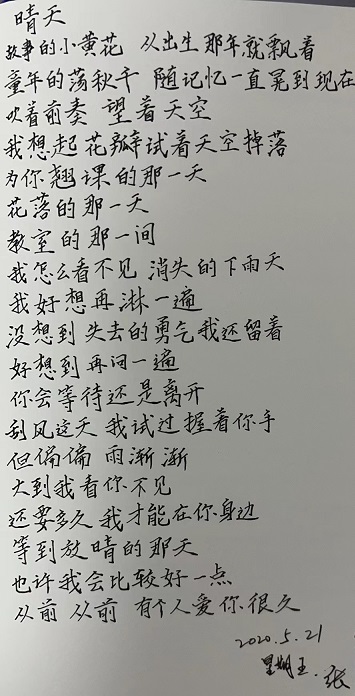 晴天
故事的小黄花 从出生那年就飘着
童年的荡秋千 随记忆一直晃到现在
吹着前奏 望着天空
我想起花瓣试着天空掉落
为你翘课的那一天
花落的那一天
教室的那一间
我怎么看不见 消失的下雨天
我好想再淋一遍
没想到失去的勇气我还留着
好想到再问一遍
你会等待还是离开
刮风这天 我试过握着你手
但偏偏 雨渐渐
大到我看你不见
还要多久 我才能在你身边
等到放晴的那天
也许我会比较好一点
从前 从前 有个人爱你很久
2020.5.21
星期五. 张